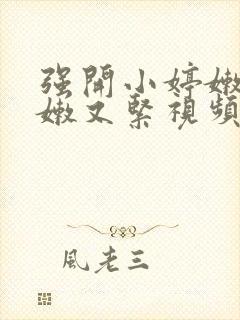 强開小婷嫩
嫩又緊視頻
風老三